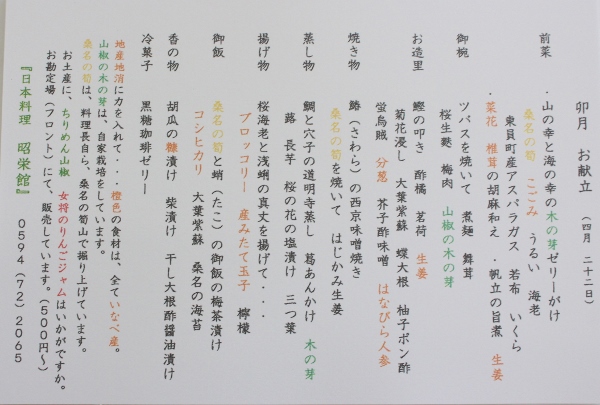 卯月　お献立　（四月　二十二日）
前菜　・山の幸と海の幸の木の芽ゼリーがけ
桑名の筍　こごみ　うるい　海老
東員町産アスパラガス　若布　いくら
・菜花　椎茸の胡麻和え　・帆立の旨煮　生姜
御椀　ツバスを焼いて　煮麺　舞茸
桜生麩　梅肉　山椒の木の芽
お造里　鰹の叩き　酢橘　茗荷　生姜
菊花浸し　大葉紫蘇　蝶大根　柚子ポン酢
蛍烏賊　分葱　芥子酢味噌　はなびら人参
焼き物　鰆（さわら）の西京味噌焼き
桑名の筍を焼いて　はじかみ生姜
蒸し物　鯛と穴子の道明寺蒸し　葛あんかけ　木の芽
蕗　長芋　桜の花の塩漬け　三つ葉
揚げ物　桜海老と浅蜊の真丈を揚げて・・・
ブロッコリー　産みたて玉子　檸檬
御飯　桑名の筍と蛸（たこ）の御飯の梅茶漬け
コシヒカリ　大葉紫蘇　桑名の海苔
香の物　胡瓜の糠漬け　柴漬け　干し大根酢醤油漬け
冷菓子　黒糖珈琲ゼリー
地産地消に力を入れて・・・橙色の食材は、全ていなべ産。
山椒の木の芽は、自家栽培をしています。
桑名の筍は、料理長自ら、桑名の筍山で掘り上げています。
お土産に、ちりめん山椒　女将のりんごジャムはいかがですか。
お勘定場（フロント）にて、販売しています。（５００円～）
『日本料理　昭栄館』　０５９４（７２）２０６５